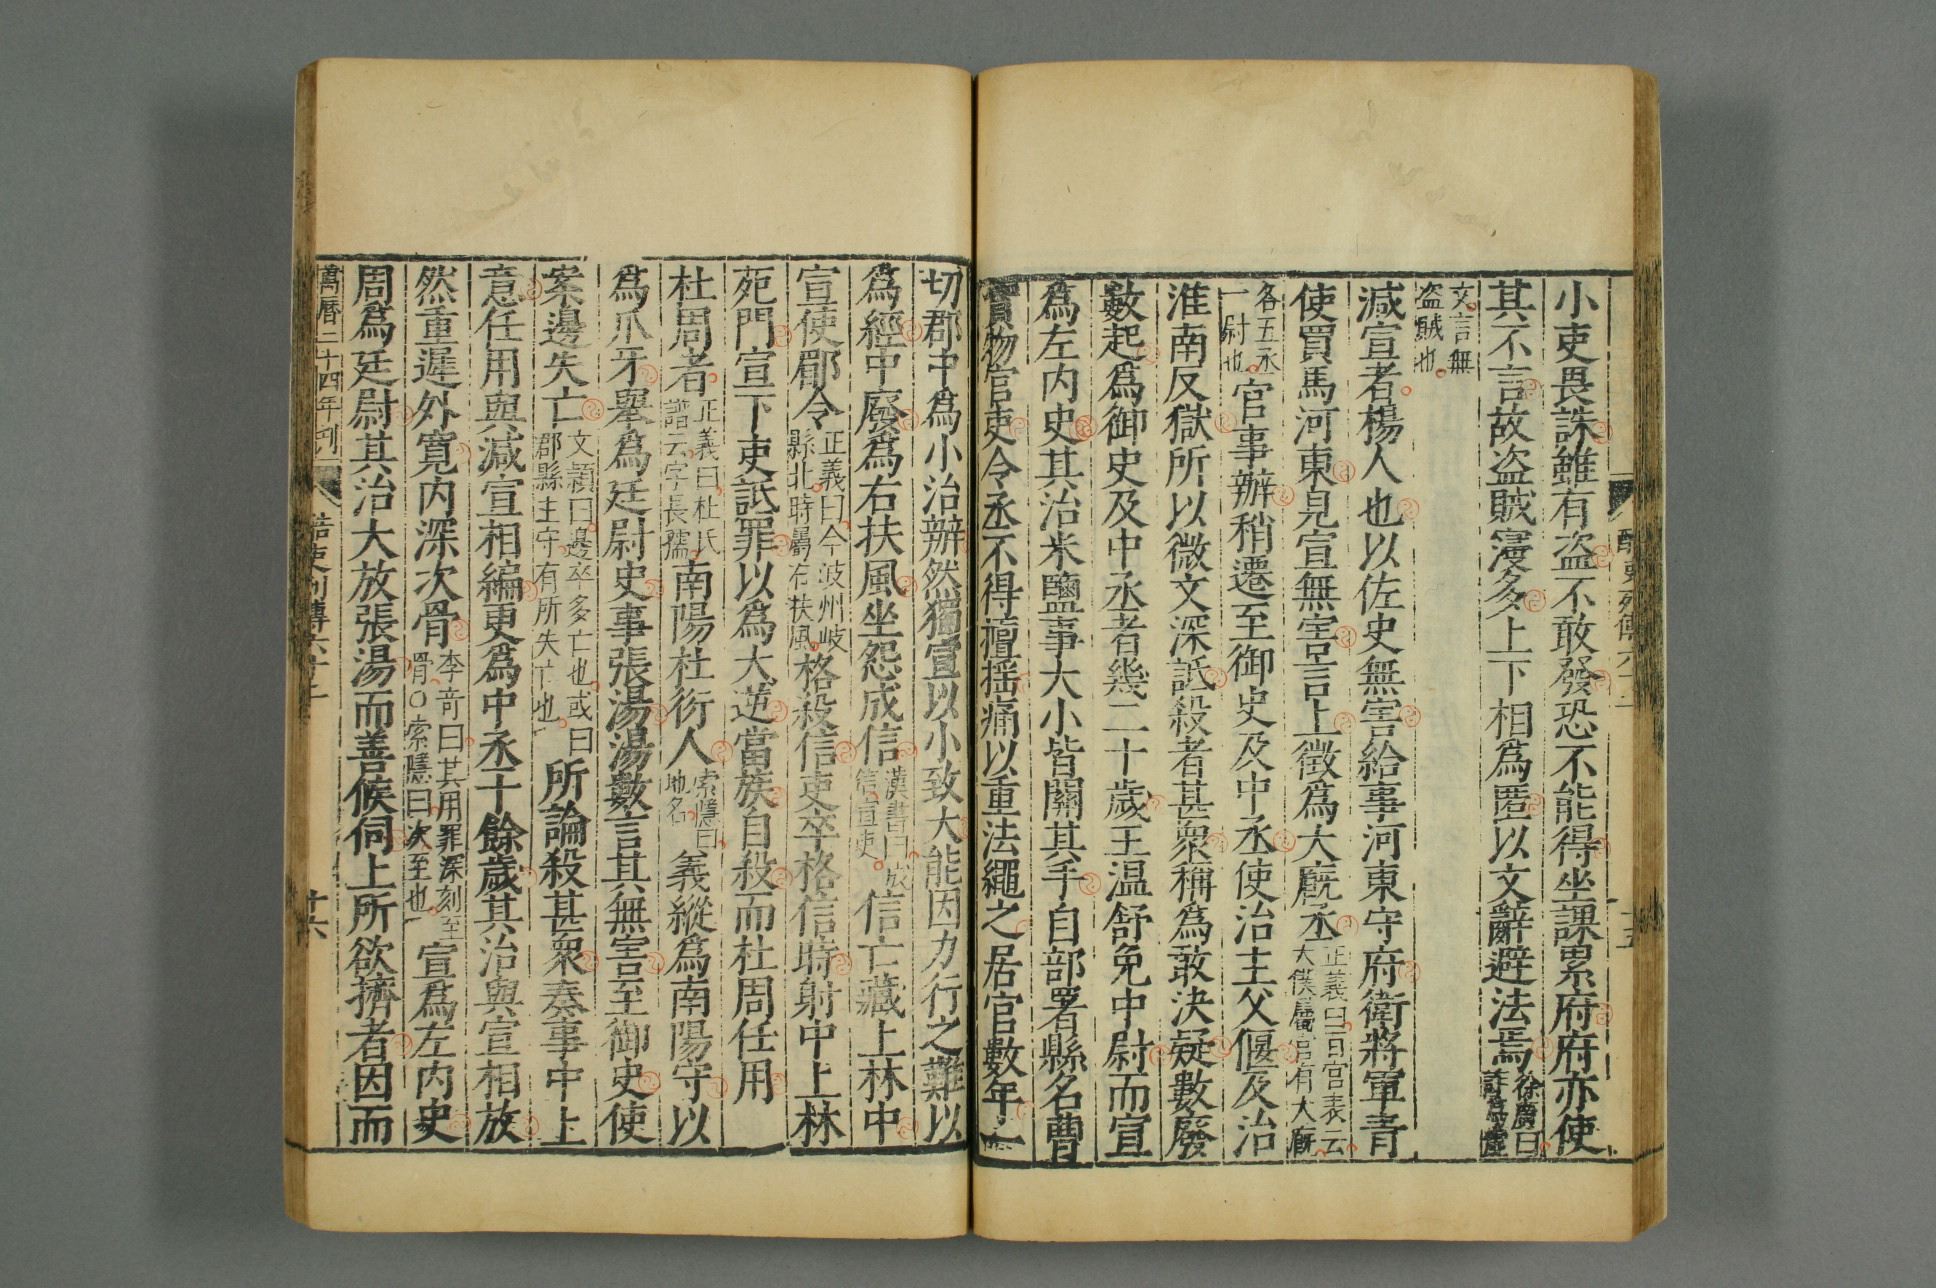 小吏畏誅雖有盜不敢發恐不能得坐課累府府亦使
其不言故盜賊寖多上下相爲匿以文辭避法焉徐廣曰詐爲虛
文言無盜賊也
減宣者楊人也以佐史無害給事河東守府衛將軍青
使買馬河東見宣無害言上徵爲大廐丞正義曰百官表云大僕屬官有大廐
各五丞一尉也官事辦稍遷至御史及中丞使治主父偃及治
淮南反獄所以微文深詆殺者甚衆稱爲敢決疑數廢
數起爲御史及中丞者幾二十歲王温舒免中尉而宣
爲左内史其治米鹽事大小皆關其手自部署縣名曹
實物官吏令丞不得擅搖痛以重法繩之居官數年一
酷吏列傳六十二
十五
切郡中爲小治辦然獨宣以小致大能因力行之難以
爲經中廢爲右扶風坐怨成信漢書曰成信宣吏信亡藏上林中
宣使郿令正義曰今岐州岐縣北時屬右扶風格殺信吏卒格信時射中上林
苑門宣下吏詆罪以爲大逆當族自殺而杜周任用
杜周者正義曰杜氏譜云字長孺南陽杜衍人索隱曰地名義縱爲南陽守以
爲爪牙舉爲廷尉史事張湯湯數言其無害至御史使
案邊失亡文穎曰邊卒多亡也或曰郡縣主守有所失亡也所論殺甚衆奏事中上
意任用與減宣相編更爲中丞十餘歲其治與宣相放
然重遲外寛内深次骨李竒曰其用罪深刻至骨○索隱曰次至也宣爲左内史
周爲廷尉其治大放張湯而善候伺上所欲擠者因而
萬曆二十四年刊
酷吏列傳六十二
十六